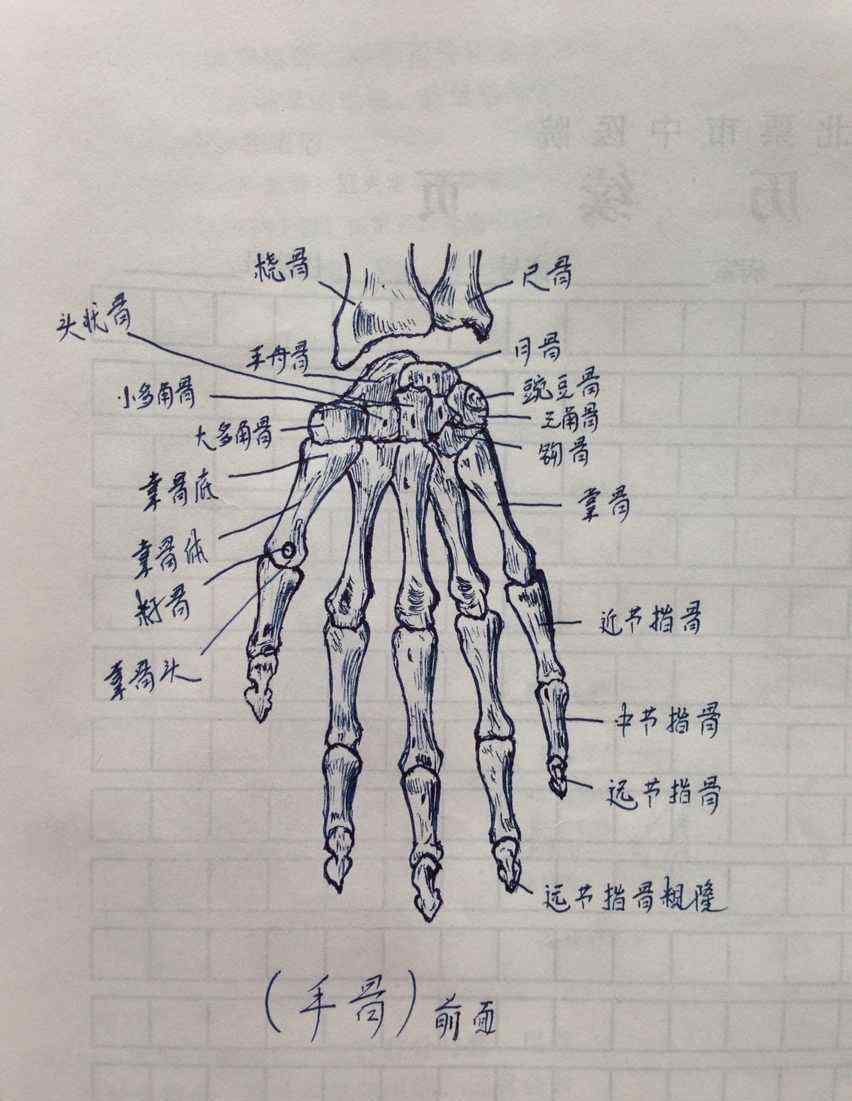 北票市中医院
历 续 页
桡骨
尺骨
头状骨
手舟骨
月骨
小多角骨
豌豆骨
三角骨
大多角骨
钩骨
掌骨底
掌骨
掌骨体
籽骨
近节指骨
掌骨头
中节指骨
远节指骨
远节指骨粗隆
（手骨）前面